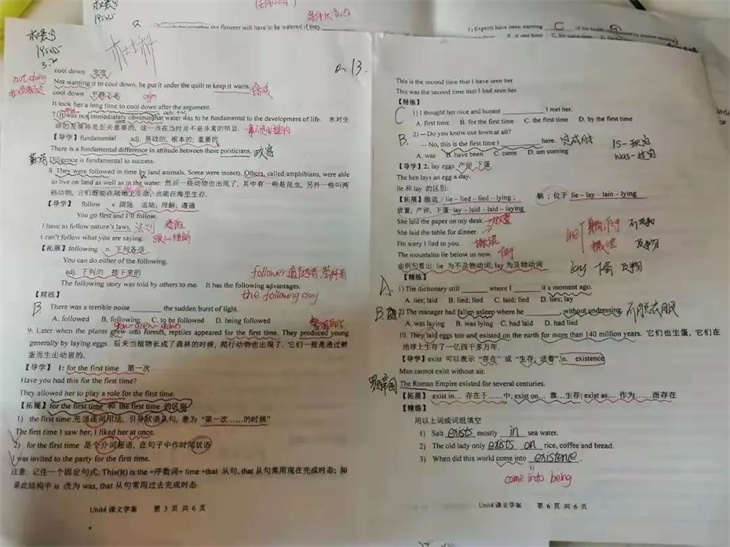 the flowers will have to be watered if they
1) Experts have been warning C of the health
not doing
cool down 变凉
Not wanting it to cool down, he put it under the quilt to keep it warm.
cool down
It took her a long time to cool down after the argument.
7. It was not immediately obvious that water was to be fundamental to the development of life. 水对生
命的发展将是至关重要的，这一点在当时并不是非常的明显。
【导学】fundamental adj. 基础的；根本的；重要的
There is a fundamental difference in attitude between these politicians. 政客
is fundamental to success.
8. They were followed in time by land animals. Some were insects. Others, called amphibians, were able
to live on land as well as in the water. 然后一些动物也出现了，其中有一些是昆虫，另外一些叫两
栖动物，它们既能在陆地上生活，也能在海里生存。
【导学】 follow v. 跟随 追随；理解；遵循
You go first and I'll follow.
I have to follow nature's laws. 法则
I can't follow what you are saying.
【拓展】following n. 下列各项
You can do either of the following.
adj. 下列的 接下来的
The following story was told by others to me. It has the following advantages.
the following day
【精练】
B There was a terrible noise ______ the sudden burst of light.
A. followed B. following C. to be followed D. being followed
9. Later when the plants grew into forests, reptiles appeared for the first time. They produced young
generally by laying eggs. 后来当植物长成了森林的时候，爬行动物也出现了。它们一般是通过孵
蛋而生出幼崽的。
【导学】1: for the first time 第一次
Have you had this for the first time?
They allowed her to play a role for the first time.
【拓展】for the first time 和 the first time 的区别
1) the first time 充当连词用法，引导状语从句，意为“第一次……的时候”
The first time I saw her, I liked her at once.
2) for the first time 是个介词短语，在句子中作时间状语
I was invited to the party for the first time.
注意：记住一个固定句式：This(It) is the +序数词+ time +that 从句，that 从句常用现在完成时态；如
果此结构中 is 改为 was, that 从句常用过去完成时态.
Unit4 课文学案 第 5 页 共 6 页
P 13.
This is the second time that I have seen her.
This was the second time that I had seen her.
【精练】
C 1) I thought her nice and honest ______ I met her.
A. first time B. for the first time C. the first time D. by the first time
B. 2) — Do you know our town at all?
— No, this is the first time I ______ here. 完成时
A. was B. have been C. came D. am coming
【导学】2: lay eggs 产卵，下蛋
The hen lays an egg a day.
lie 和 lay 的区别:
【拓展】撒谎：lie – lied – lied – lying； 躺；位于 lie – lay – lain – lying
放置；产卵，下蛋 lay – laid – laid – laying
She laid the paper on my desk.
She laid the table for dinner.
I'm sorry I lied to you. 撒谎
The mountains lie below us now.
由例句看出：lie 为不及物动词；lay 为及物动词
lay 下蛋 及物
【精练】
A 1) The dictionary still ______ where I ______ it a moment ago.
A. lies; laid B. lied; lied C. laid; lied D. lies; lay
B 2) The manager had fallen asleep where he ______ without undressing. 不脱衣服
A. was laying B. was lying C. had laid D. had lied
10. They laid eggs too and existed on the earth for more than 140 million years. 它们也生蛋，它们在
地球上生存了一亿四千多万年.
【导学】exist 可以表示“存在”或“生存，活着” n. existence
Man cannot exist without air.
The Roman Empire existed for several centuries.
【拓展】 exist in… 存在于……中；exist on… 靠…生存；exist as… 作为……而存在
【精练】
用以上词或词组填空
1) Salt exists mostly in sea water.
2) The old lady only exists on rice, coffee and bread.
3) When did this world come into existence.
come into being
Unit4 课文学案 第 6 页 共 6 页